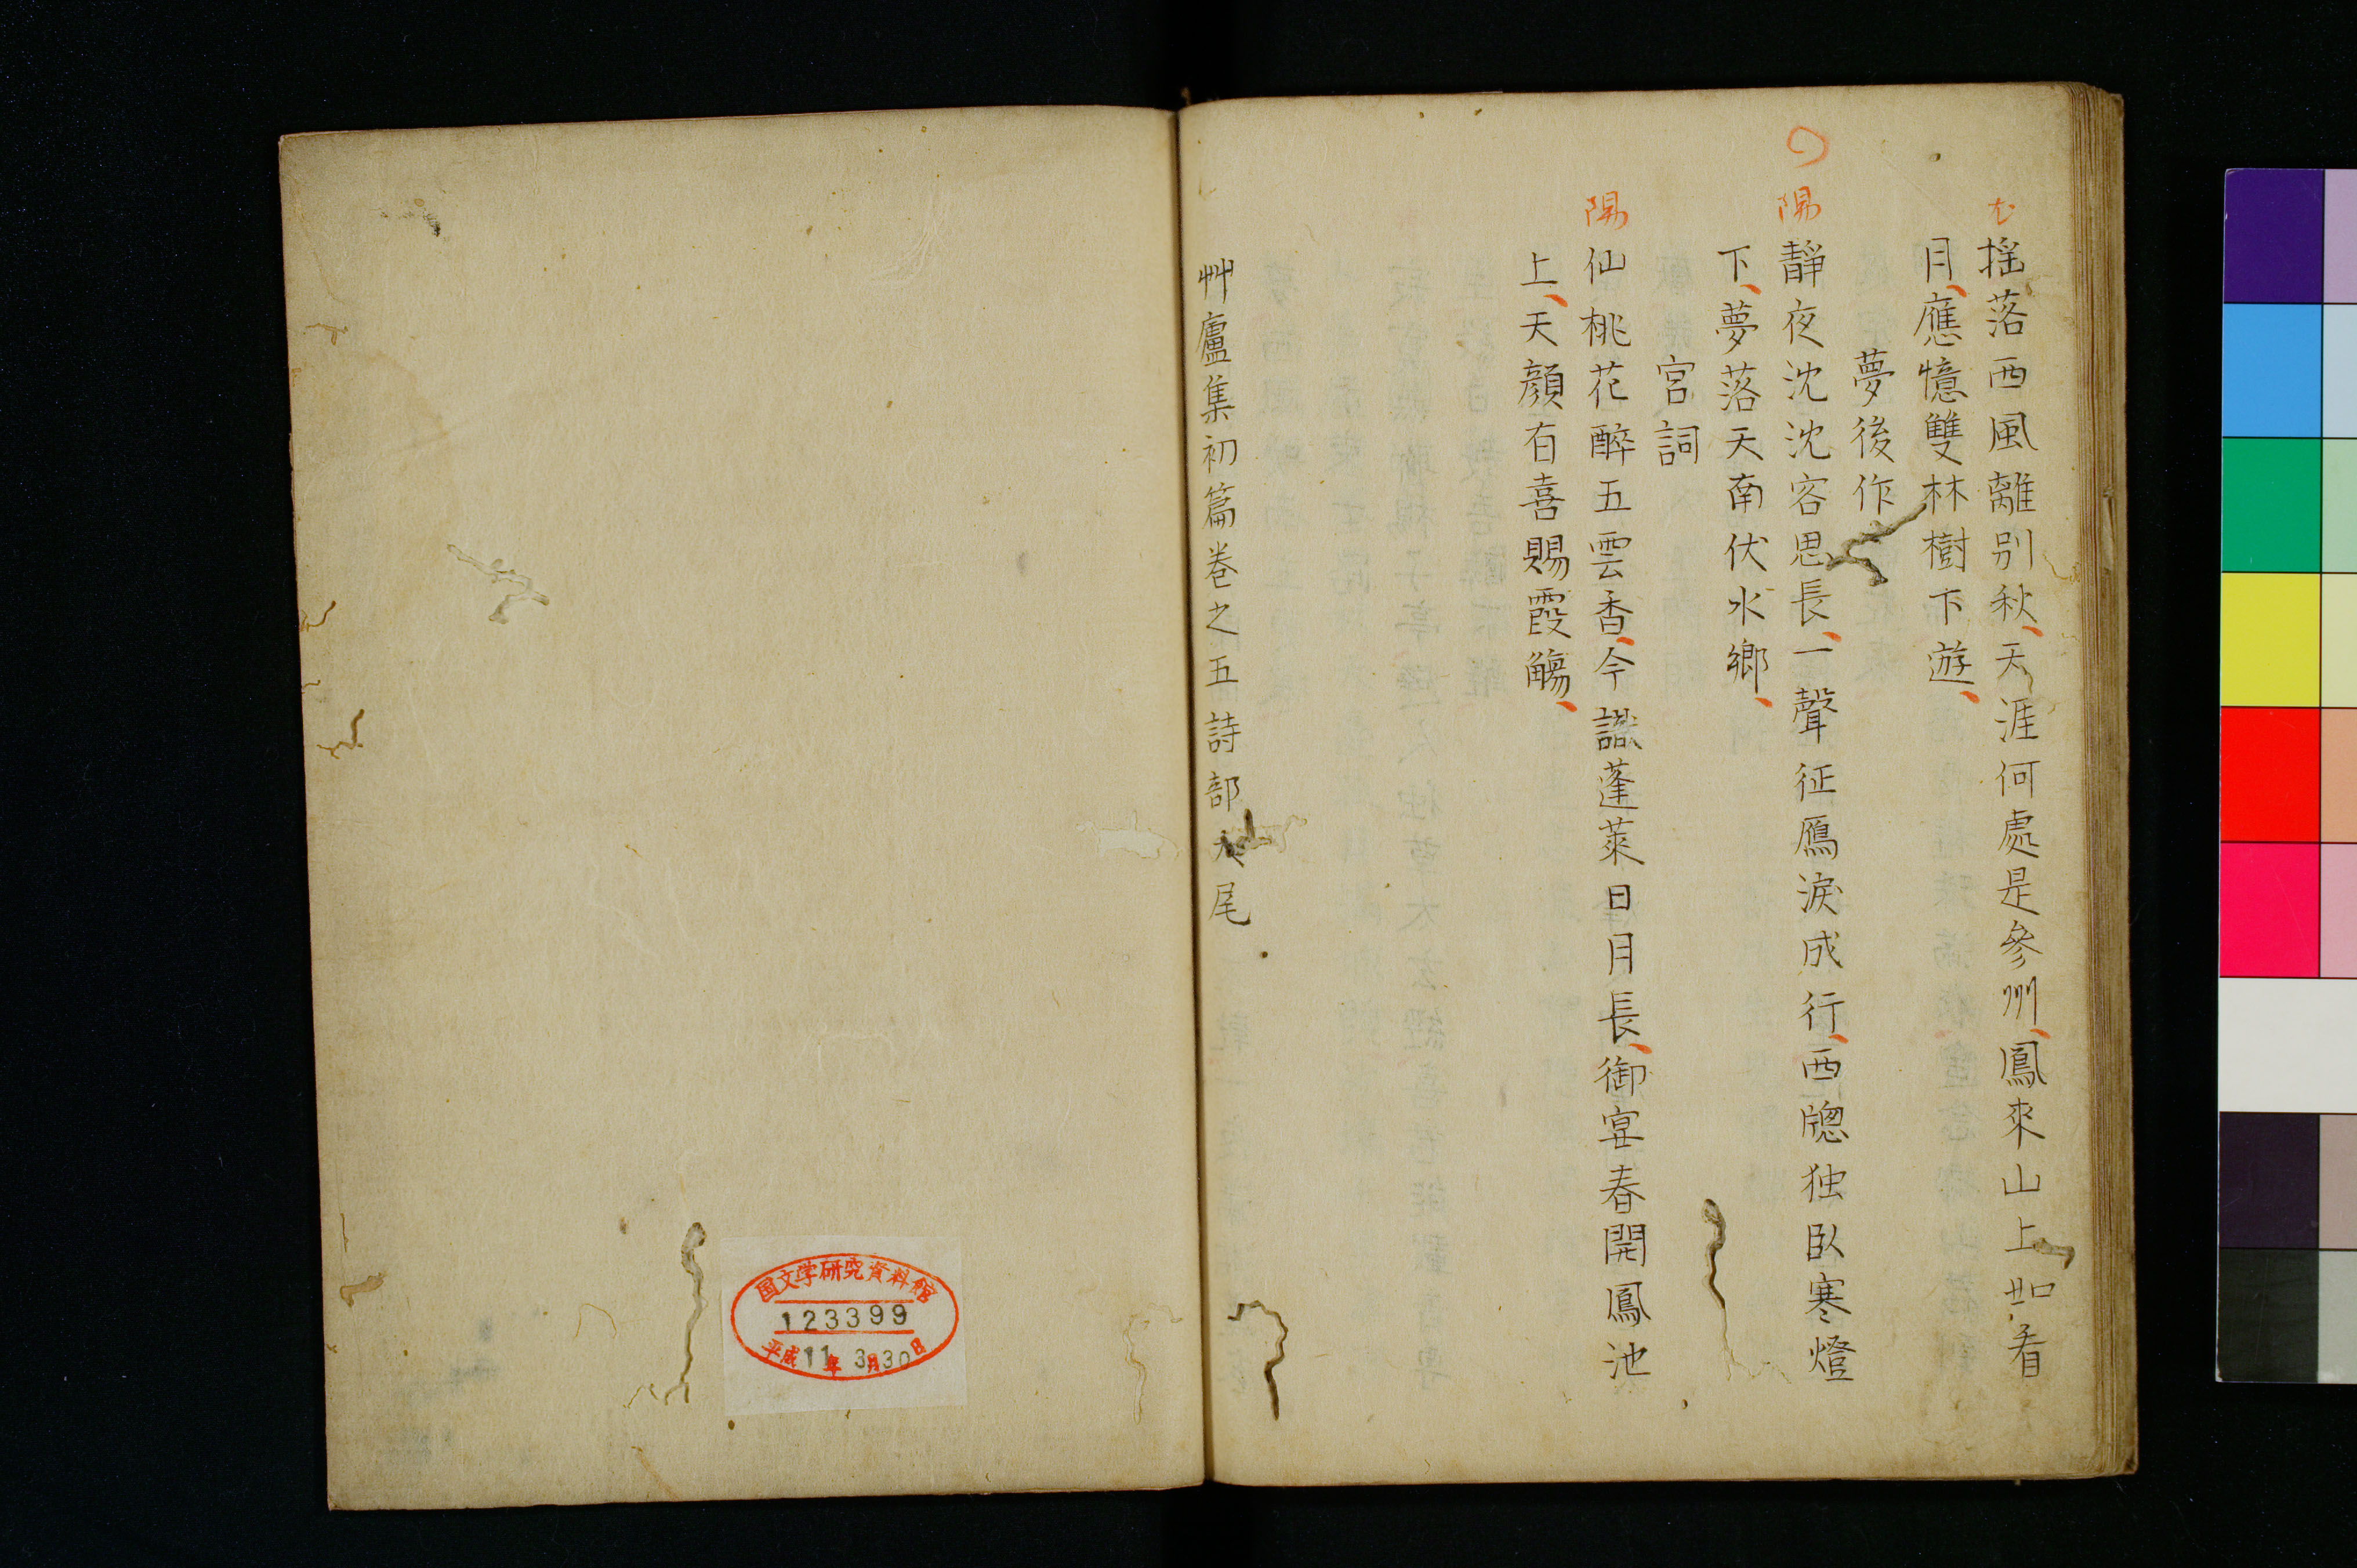 尤
搖落西風離別秋、天涯何處是參州、鳳來山上如看
月、應憶雙林樹下遊、
夢後作
陽
靜夜沈沈客思長、一聲征鴈淚成行、西牎独臥寒燈
下、夢落天南伏水鄉、
宮詞
陽
仙桃花醉五雲香、今識蓬萊日月長、御宴春開鳳池
上、天顏有喜賜霞觴、
艸廬集初篇卷之五詩部大尾
国文学研究資料館
123399
平成11年3月30日